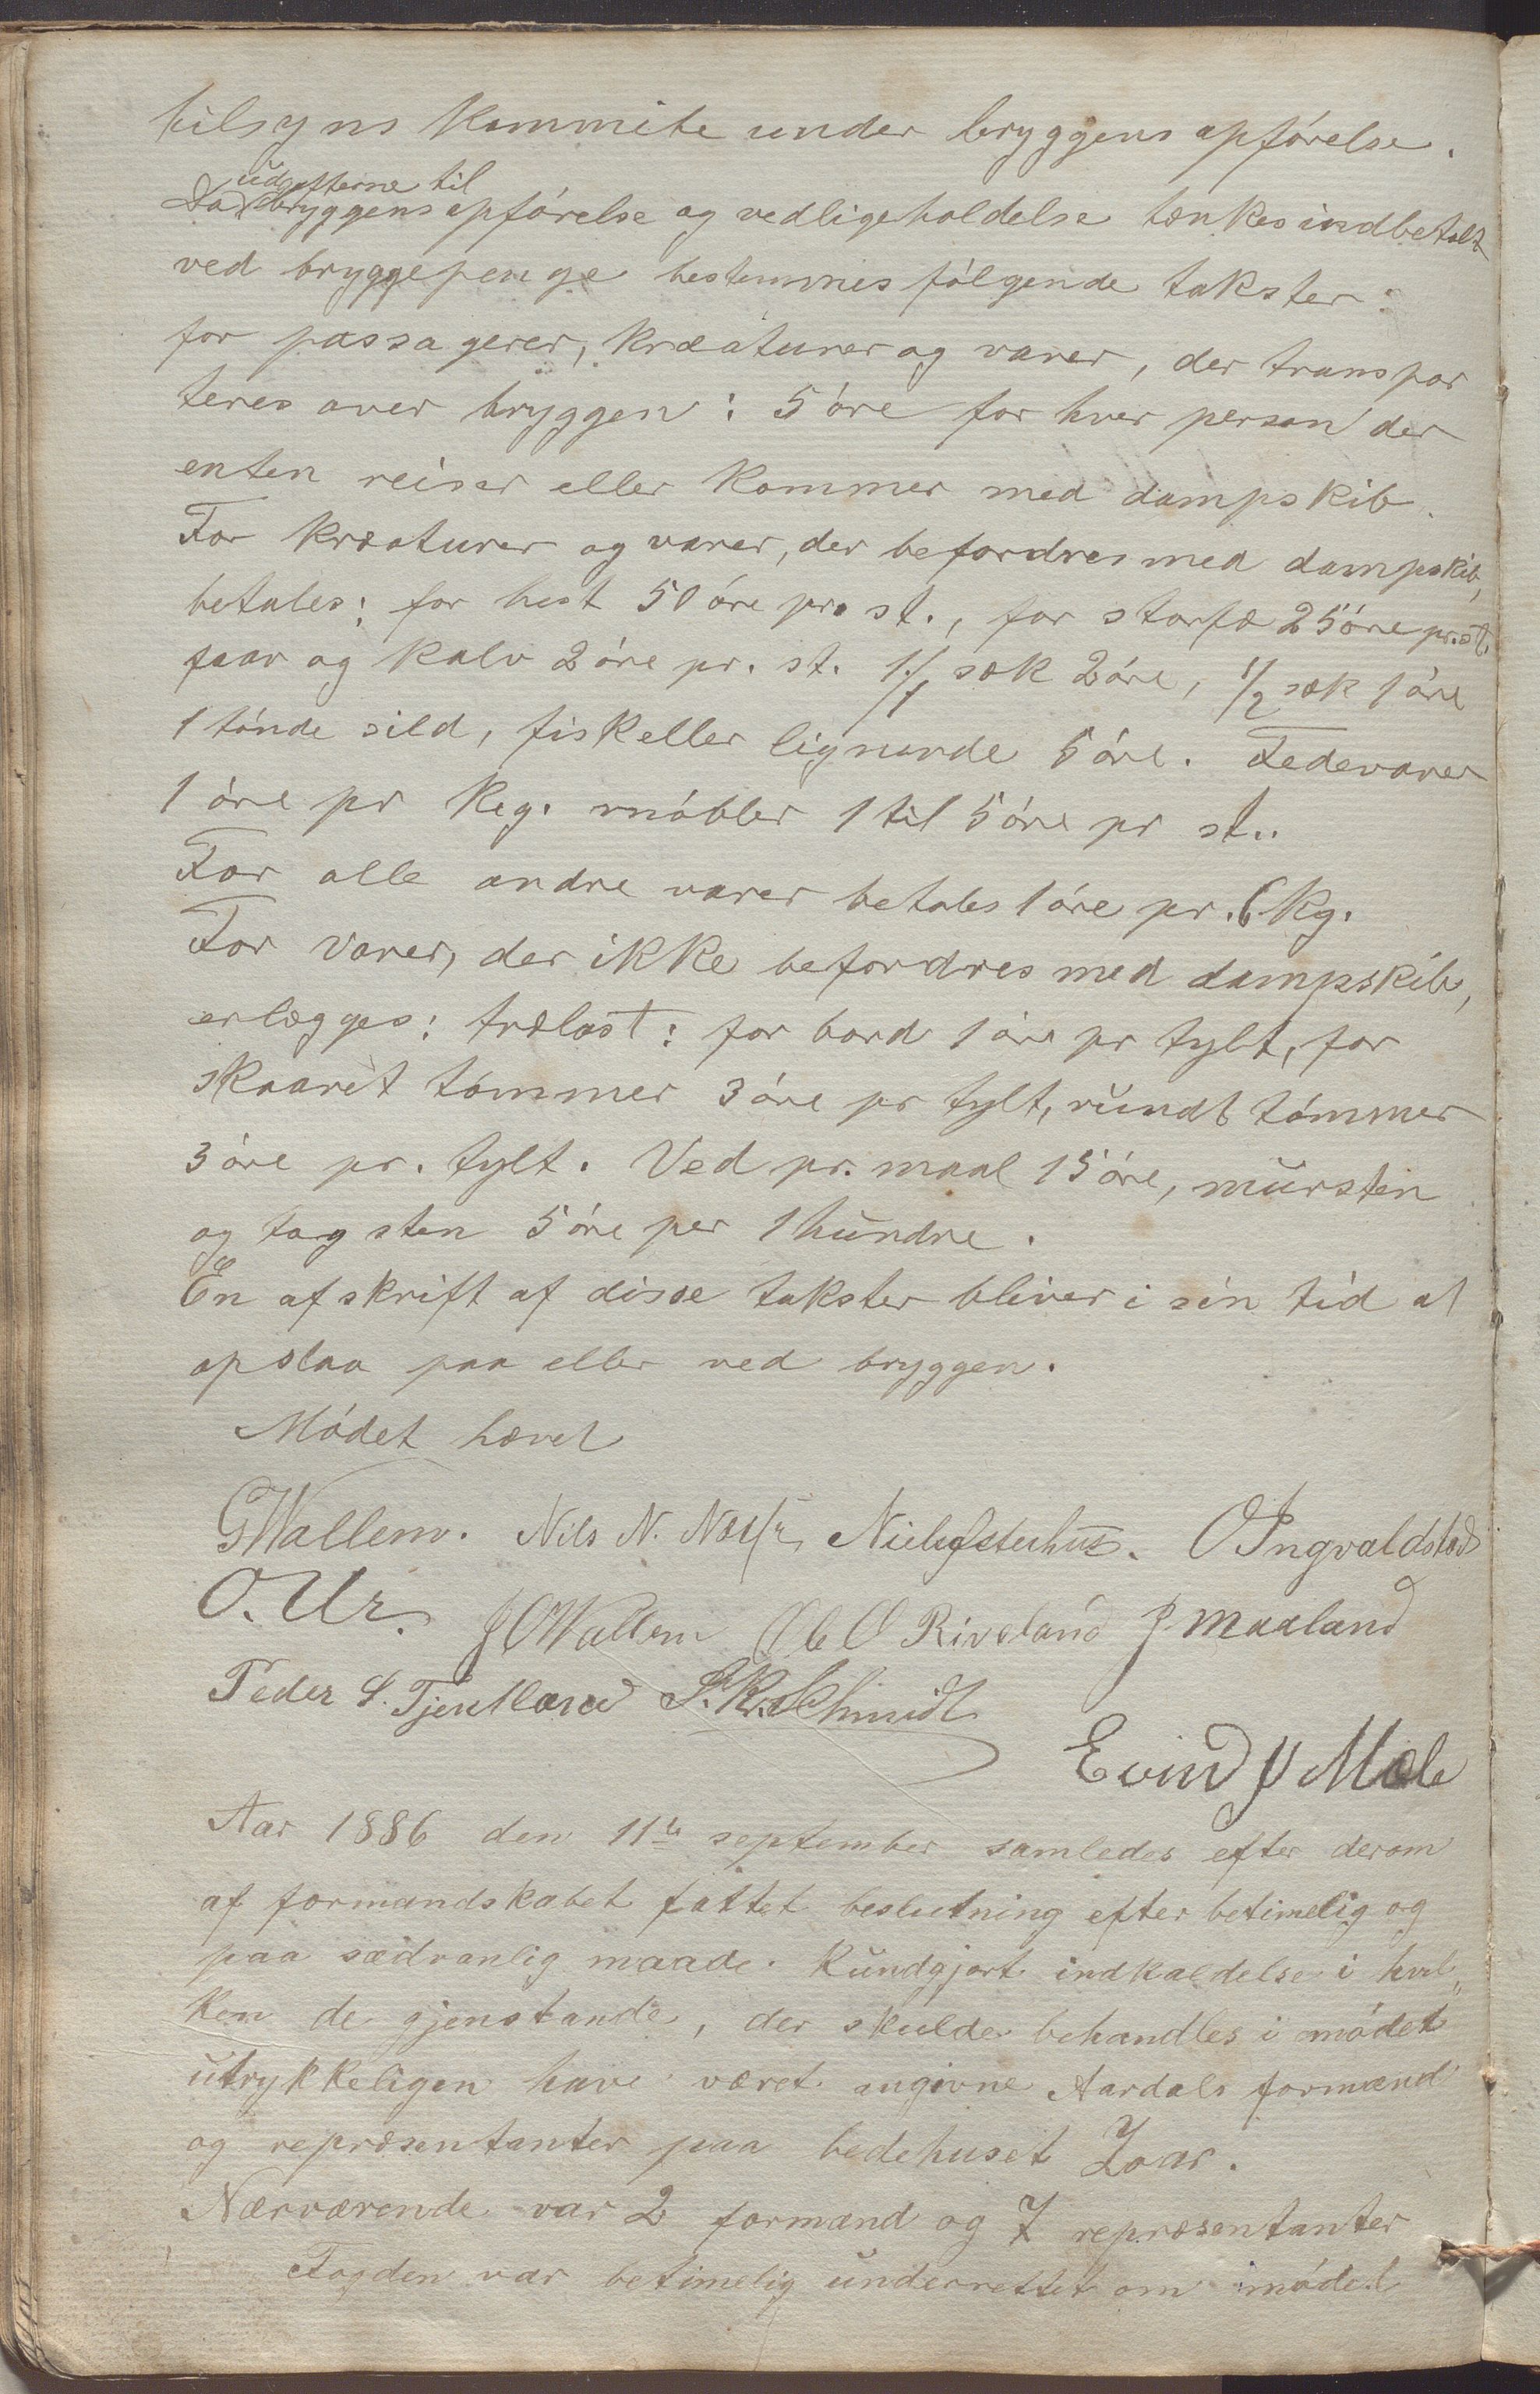 tilsyns kommite under bryggens opførelse.
udgifterne til
Da bryggens opførelse og vedligeholdelse tænkes indbetalt
ved bryggepenge bestemmes følgende takster:
for passagerer, kræaturer og varer, der transpor
teres over bryggen: 5 øre for hver person der
enten reiser eller kommer med dampskib.
For kræaturer og varer, der befordres med dampskib,
betales: for hest 50 øre pr. st., for storfæ 25 øre pr. st.
faar og kalv 2 øre pr. st. 1/1 sæk 2 øre, 1/2 sæk 1 øre
1 tønde sild, fisk eller lignende 5 øre. Fedevarer
1 øre pr keg. møbler 1 til 5 øre pr st..
For alle andre varer betales 1 øre pr. 6 kg.
For varer, der ikke befordres med dampskib,
erlægges: trælast: for bord 1 øre pr tylt, for
skaaret tømmer 3 øre pr tylt, rundt tømmer
3 øre pr. tylt. Ved pr. maal 15 øre, mursten
og tagsten 5 øre per 1 hundre.
En afskrift af disse takster bliver i sin tid at
opslaa paa eller ved bryggen.
Mødet hævet
GWallem. Nils N. O Ingvaldstad
O. Ur. J O Wallem Ole O Riveland J. Maaland
Peder S. Tjentland S. Kr. Schmidt
Evind J Mæle
Aar 1886 den 11te september samledes efter derom
af formandskabet fattet beslutning efter betimelig og
paa sædvanlig maade. kundgjort indkaldelse i hvil„
ken de gjenstande, der skulde behandles i mødet
utrykkeligen have været angivne Aardals formænd
og repræsentanter paa bedehuset Zoar.
Nærværende var 2 formænd og 7 repræsentanter
Fogden var betimelig underrettet om mødet